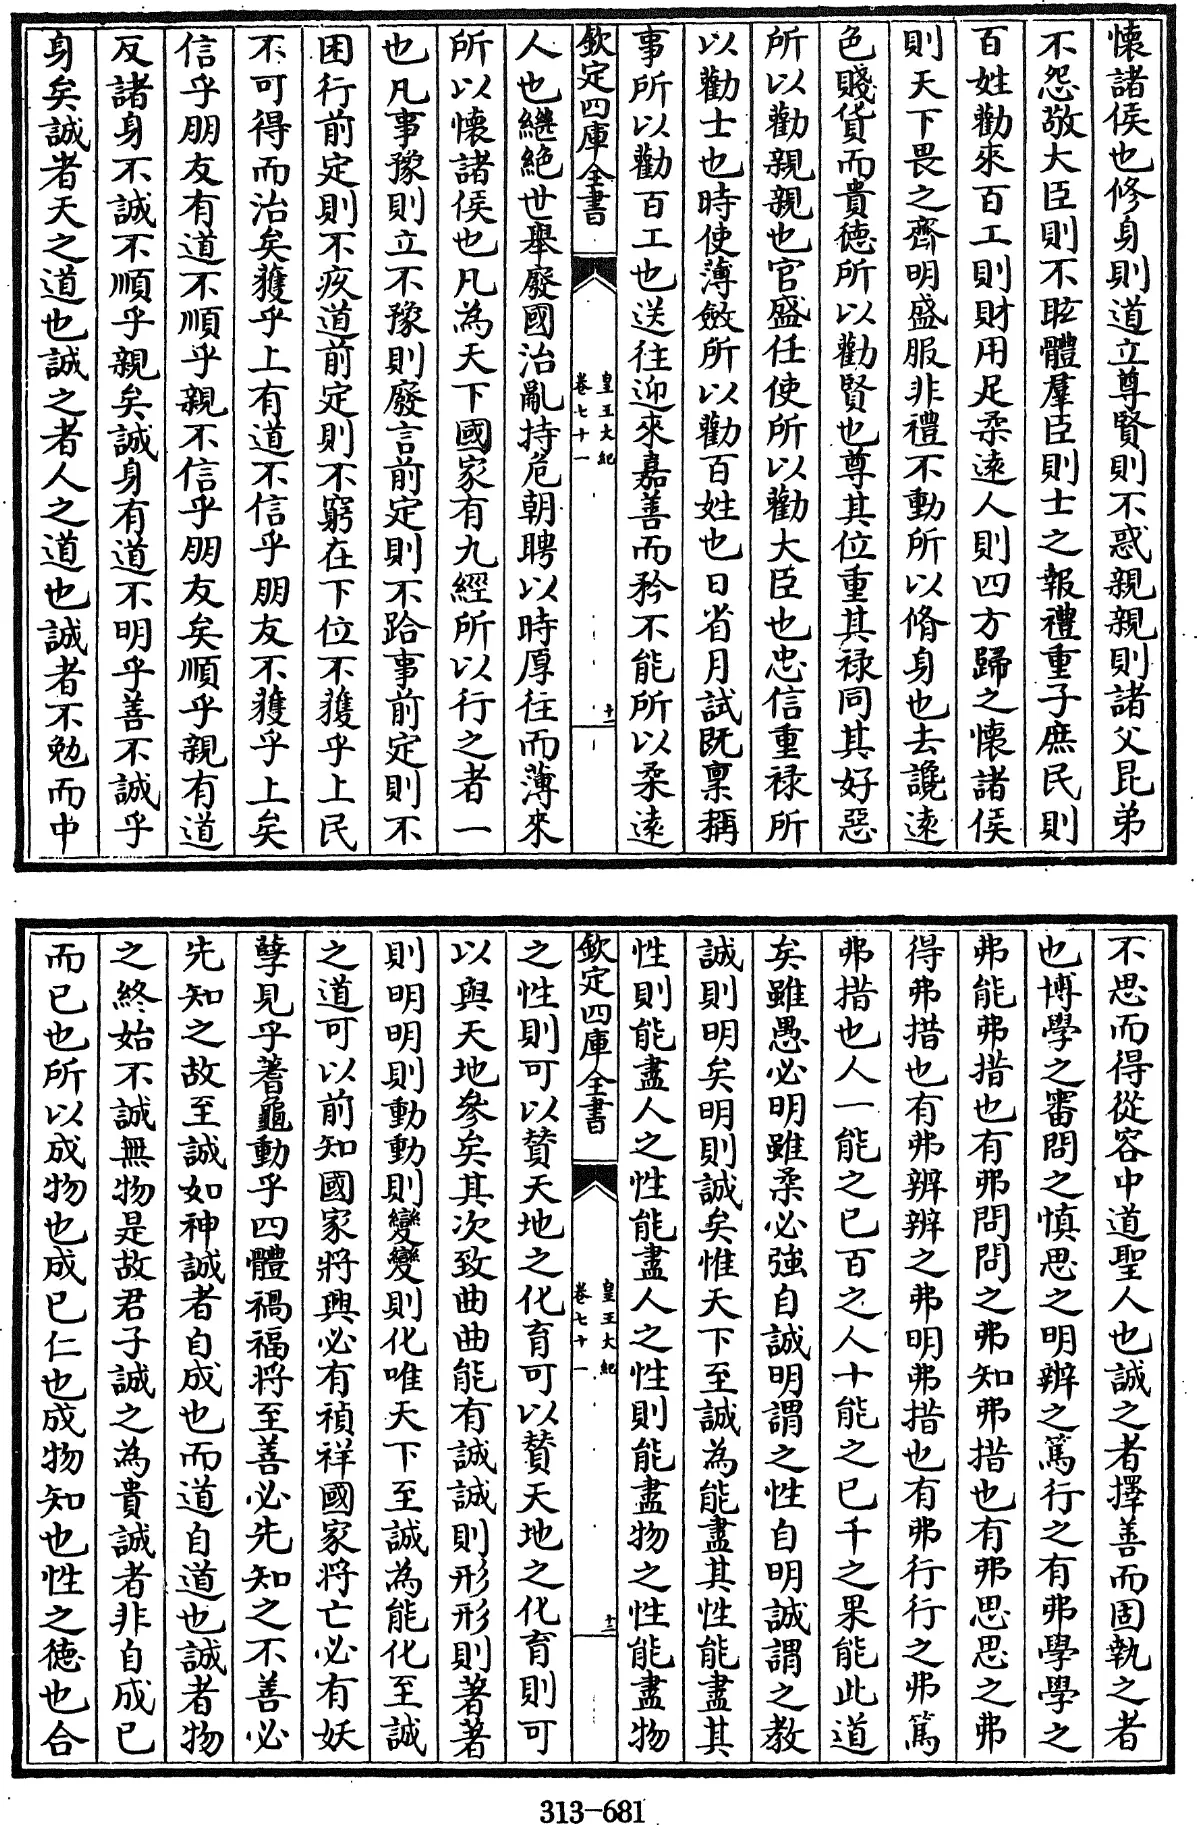 懷諸侯也修身則道立尊賢則不惑親親則諸父昆弟
不怨敬大臣則不眩體羣臣則士之報禮重子庶民則
百姓勸來百工則財用足柔遠人則四方歸之懷諸侯
則天下畏之齊明盛服非禮不動所以脩身也去讒遠
色賤貨而貴德所以勸賢也尊其位重其祿同其好惡
所以勸親親也官盛任使所以勸大臣也忠信重祿所
以勸士也時使薄斂所以勸百姓也日省月試既稟稱
事所以勸百工也送往迎來嘉善而矜不能所以柔遠
欽定四庫全書
皇王大紀
卷七十一
十二
人也繼絕世舉廢國治亂持危朝聘以時厚往而薄來
所以懷諸侯也凡為天下國家有九經所以行之者一
也凡事豫則立不豫則廢言前定則不跲事前定則不
困行前定則不疚道前定則不窮在下位不獲乎上民
不可得而治矣獲乎上有道不信乎朋友不獲乎上矣
信乎朋友有道不順乎親不信乎朋友矣順乎親有道
反諸身不誠不順乎親矣誠身有道不明乎善不誠乎
身矣誠者天之道也誠之者人之道也誠者不勉而中
不思而得從容中道聖人也誠之者擇善而固執之者
也博學之審問之慎思之明辨之篤行之有弗學學之
弗能弗措也有弗問問之弗知弗措也有弗思思之弗
得弗措也有弗辨辨之弗明弗措也有弗行行之弗篤
弗措也人一能之已百之人十能之已千之果能此道
矣雖愚必明雖柔必強自誠明謂之性自明誠謂之教
誠則明矣明則誠矣惟天下至誠為能盡其性能盡其
性則能盡人之性能盡人之性則能盡物之性能盡物
欽定四庫全書
皇王大紀
卷七十一
十三
之性則可以贊天地之化育可以贊天地之化育則可
以與天地參矣其次致曲曲能有誠誠則形形則著著
則明明則動動則變變則化唯天下至誠為能化至誠
之道可以前知國家將興必有禎祥國家將亡必有妖
孽見乎蓍龜動乎四體禍福將至善必先知之不善必
先知之故至誠如神誠者自成也而道自道也誠者物
之終始不誠無物是故君子誠之為貴誠者非自成已
而已也所以成物也成已仁也成物知也性之德也合
313-681